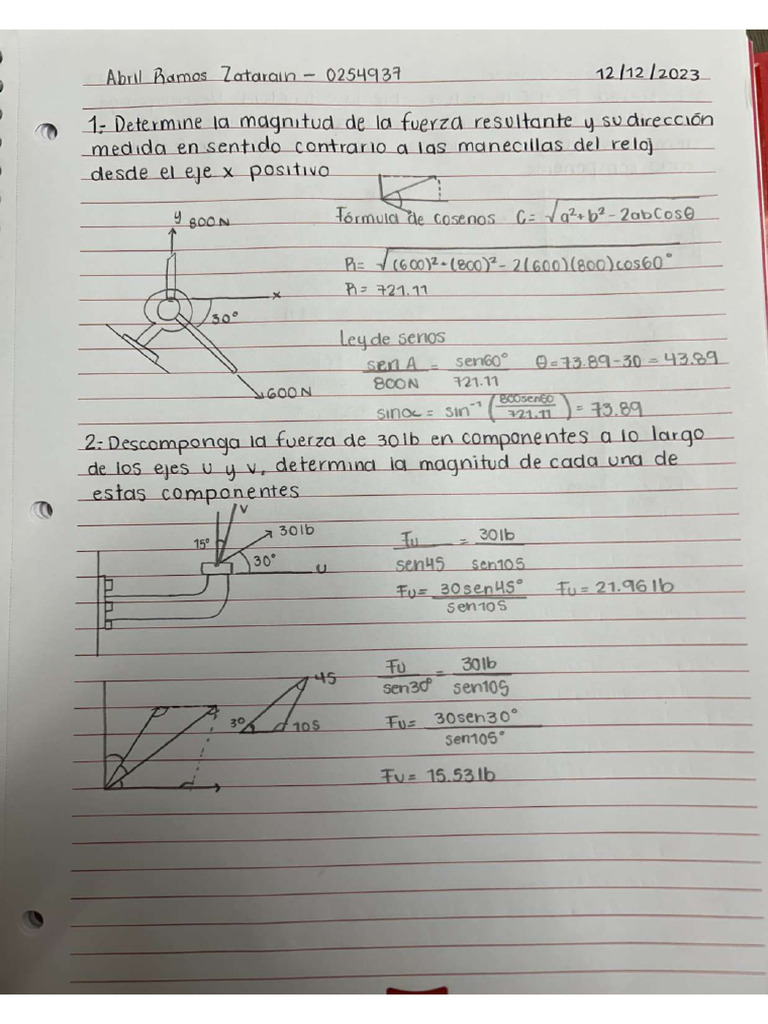 Abril Ramos Zatarain - 0254937 12/12/2023
1.- Determine la magnitud de la fuerza resultante y su dirección
medida en sentido contrario a las manecillas del reloj
desde el eje x positivo
Fórmula de cosenos C= √a²+b²-2abCosθ
y 800N
R= √(600)²+(800)²-2(600)(800)cos60°
R= 721.11
x
30°
600N
Ley de senos
sen A / 800N = sen60° / 721.11 θ=73.89-30=43.89
sinα = sin⁻¹ (800sen60 / 721.11) = 73.89
2.- Descomponga la fuerza de 30lb en componentes a lo largo
de los ejes u y v, determina la magnitud de cada una de
estas componentes
v
30lb
15°
30°
u
Fu / sen45 = 30lb / sen105
Fu= 30sen45° / sen105 Fu=21.96lb
Fu / sen30° = 30lb / sen105
45
30
105
Fu= 30sen30° / sen105°
Fv= 15.53lb